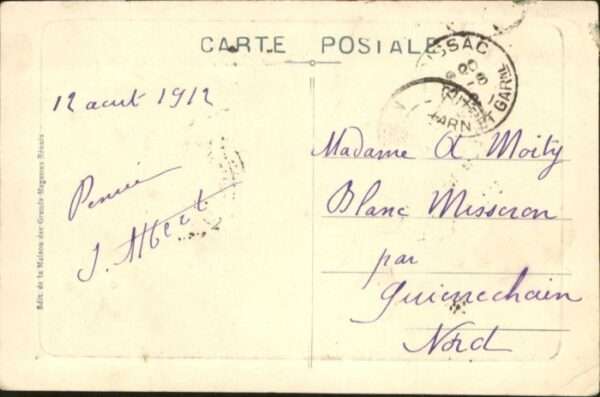 CARTE POSTALE
ISSAC
TARN ET GARNE
TARN
12 aout 1912
Madame A Moity
Pensée
Blanc Misseron
J. Albert
par
Quievrechain
Nord
Edit. de la Maison des Grands Magasins Réunis